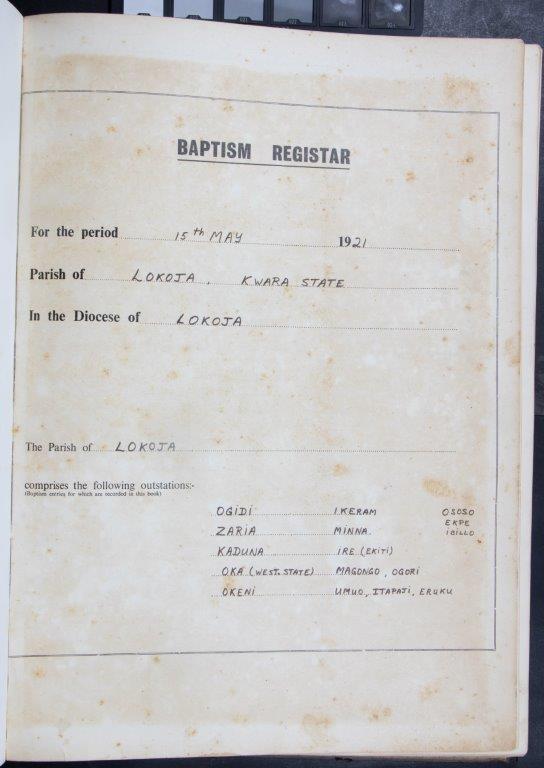 BAPTISM REGISTAR
For the period 15th MAY 1921
Parish of LOKOJA, KWARA STATE
In the Diocese of LOKOJA
The Parish of LOKOJA
comprises the following outstations:-
(Baptism entries for which are recorded in this book)
OGIDI IKERAM OSOSO
EKPE
ZARIA MINNA. IBILLO
KADUNA IRE (EKITI)
OKA (WEST. STATE) MAGONGO, OGORI
OKENI UMUO, ITAPAJI, ERUKU